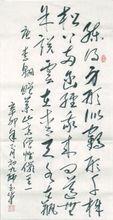 練得身形似鶴形千株
松下兩函經我來問道無
餘說雲在青天水在瓶
唐李翱贈藥山高僧惟儼
辛卯年